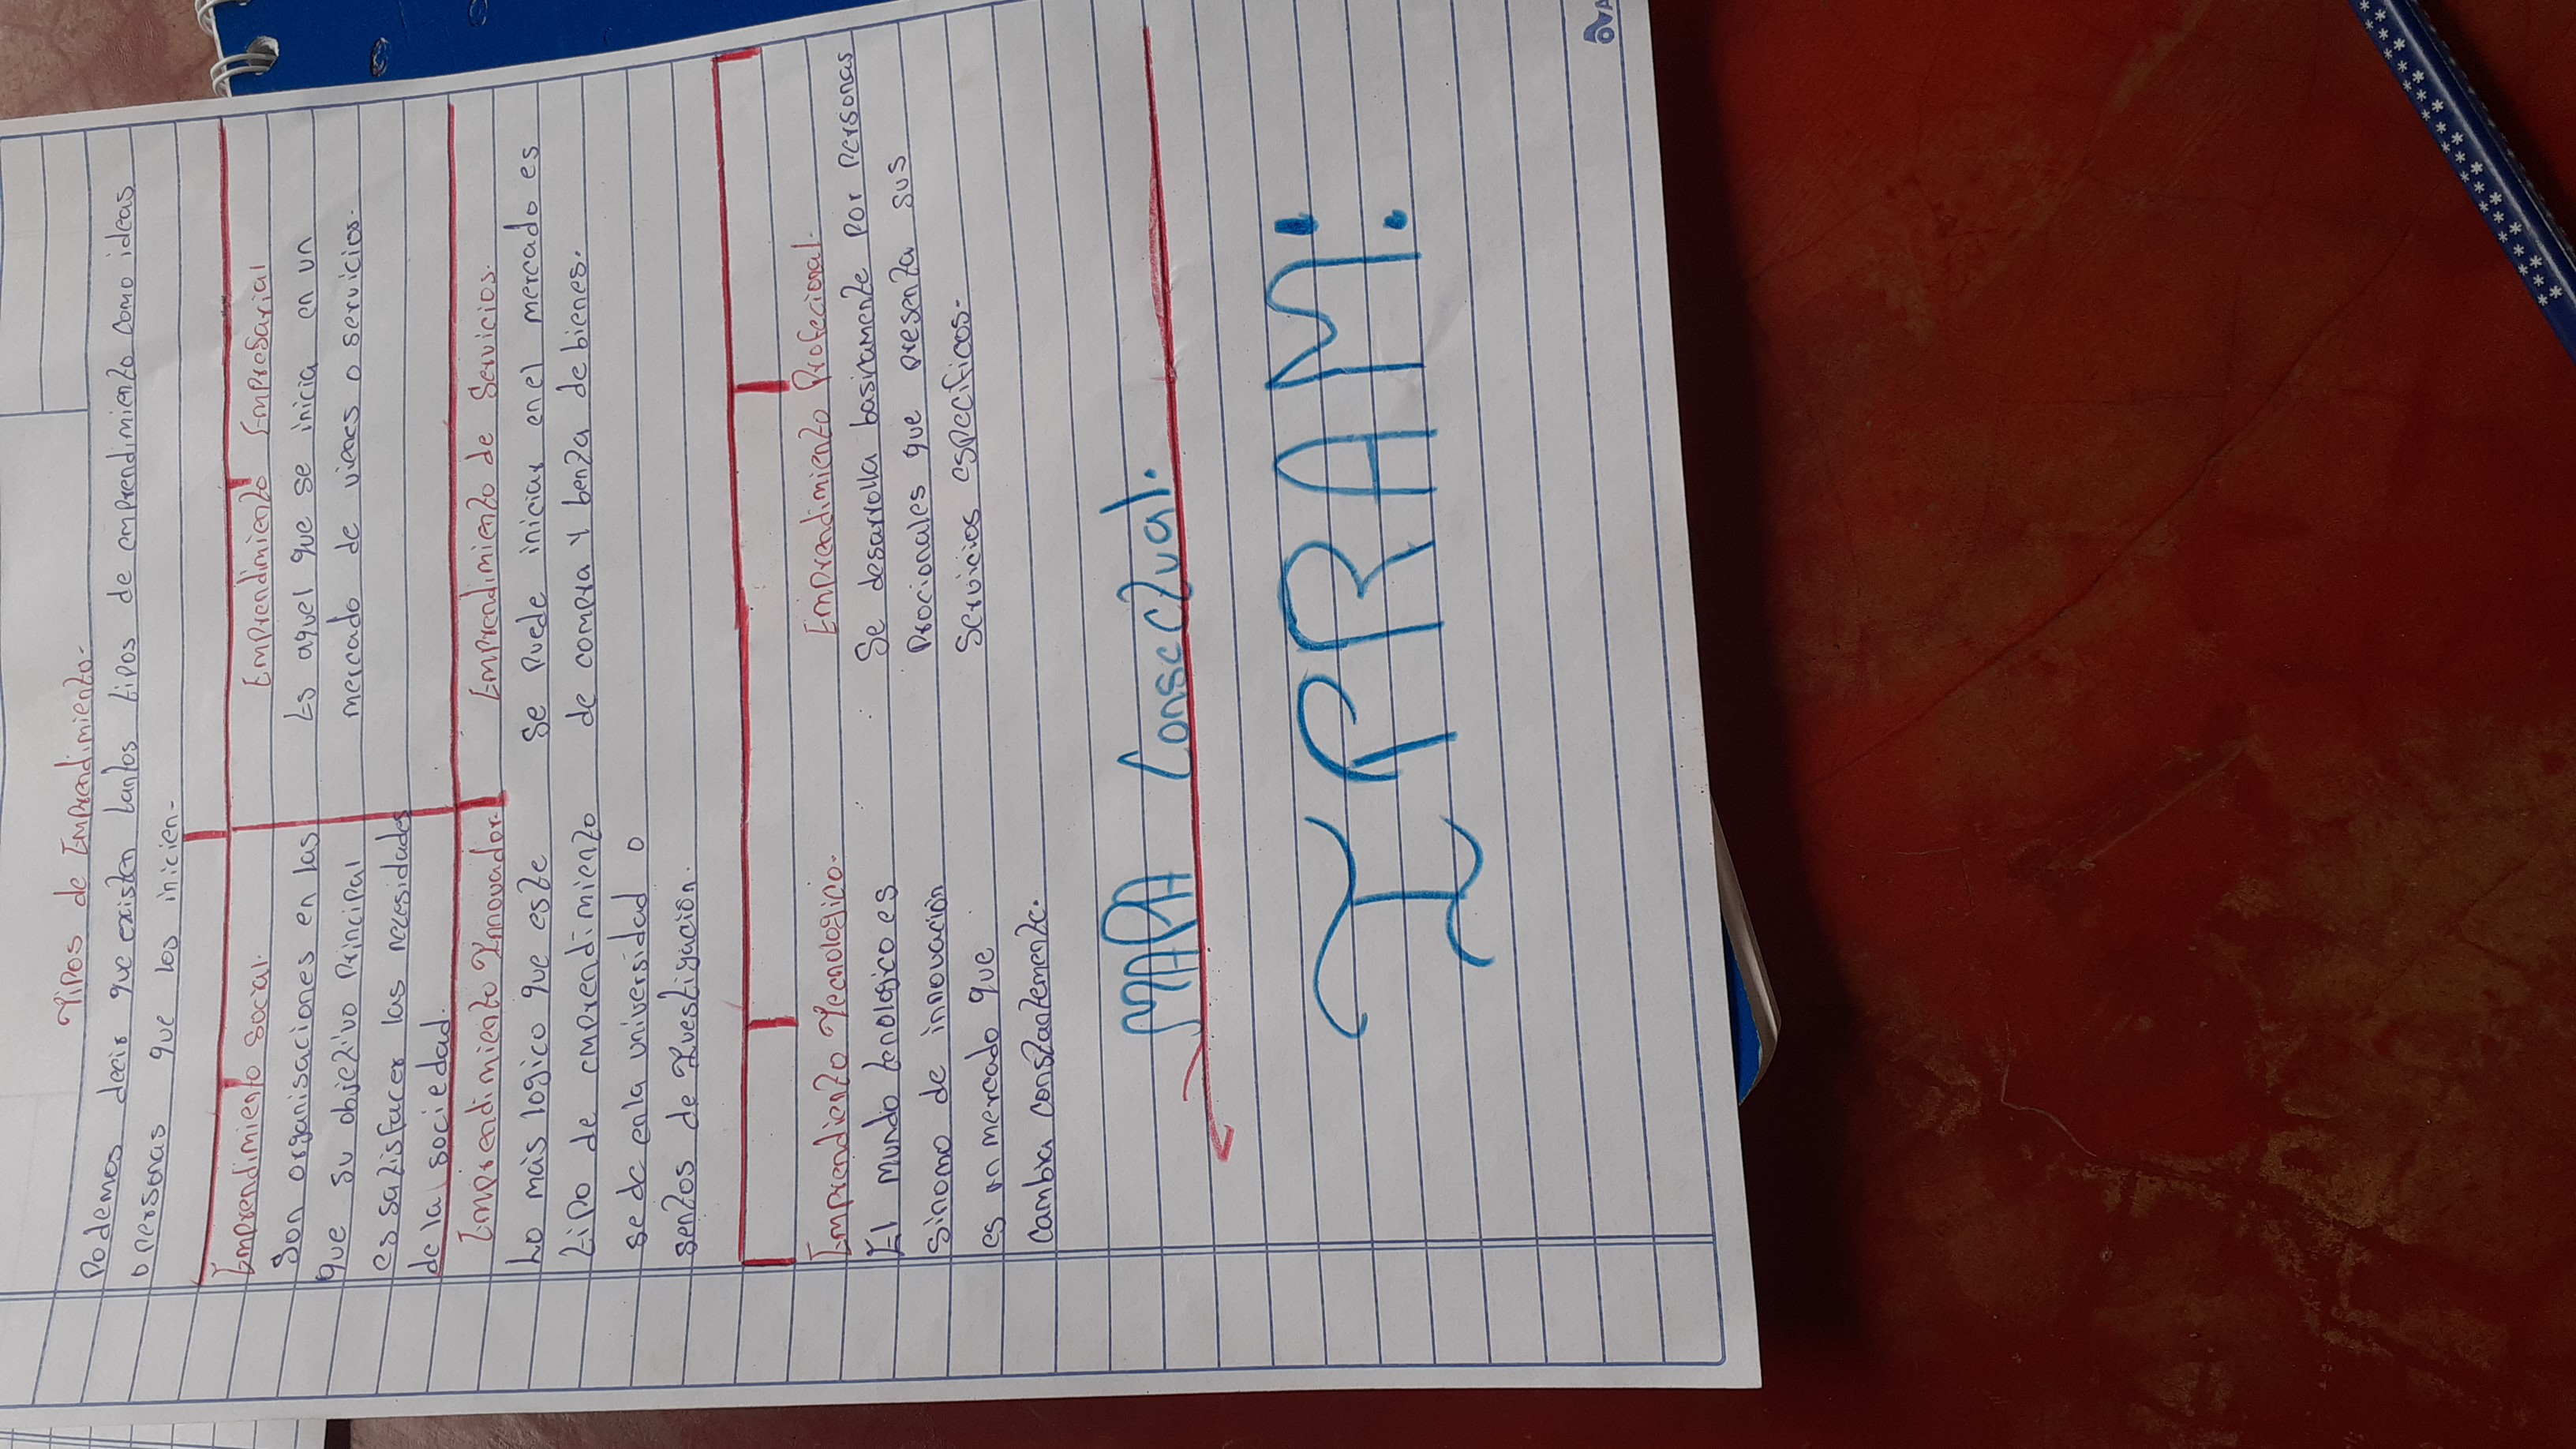 Tipos de Emprendimiento.
Podemos decir que existen tantos tipos de emprendimiento como ideas
o personas que los inicien.
Emprendimiento social.
Son organisaciones en las
que su objetivo Principal
es satisfacer las necesidades
de la sociedad.
Emprendimiento Empresarial
Es aquel que se inicia en un
mercado de vienes o servicios.
Emprendimiento Innovador.
Lo más logico que este
tipo de emprendimiento
se de en la universidad o
sentos de Investigación.
Emprendimiento de Servicios.
Se puede iniciar en el mercado es
de compra y benta de bienes.
Emprendiento Tecnologico.
El mundo tenologico es
Sinomo de innovación
es un mercado que
Cambia constantemente.
Emprendimiento Profecional.
Se desarrolla basicamente por personas
Procionales que presenta sus
Servicios especificos.
MAPA Consectual.
IPRAM.